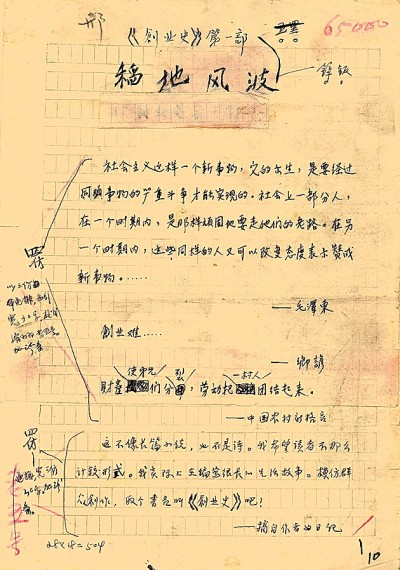 《创业史》第一部
65000
稻地风波
锌版
社会主义这样一个新事物，它的出生，是要经过
同旧事物的严重斗争才能实现的。社会上一部分人，
在一个时期内，是那样顽固地要走他们的老路。在另
一个时期内，这些同样的人又可以改变态度表示赞成
新事物。……
——毛泽东
创业难……
——乡谚
使弟兄 裂 一村人
财产 们分 ，劳动把 团结起来。
——中国农村的格言
四仿
四仿
这不像长篇小说，也不是诗。我希望读者不那么
计较形式。我实际上在编写很长的生活故事。模仿群
众创作，取个书名叫《创业史》吧！
——摘自作者的日记
28×18=504
1/10